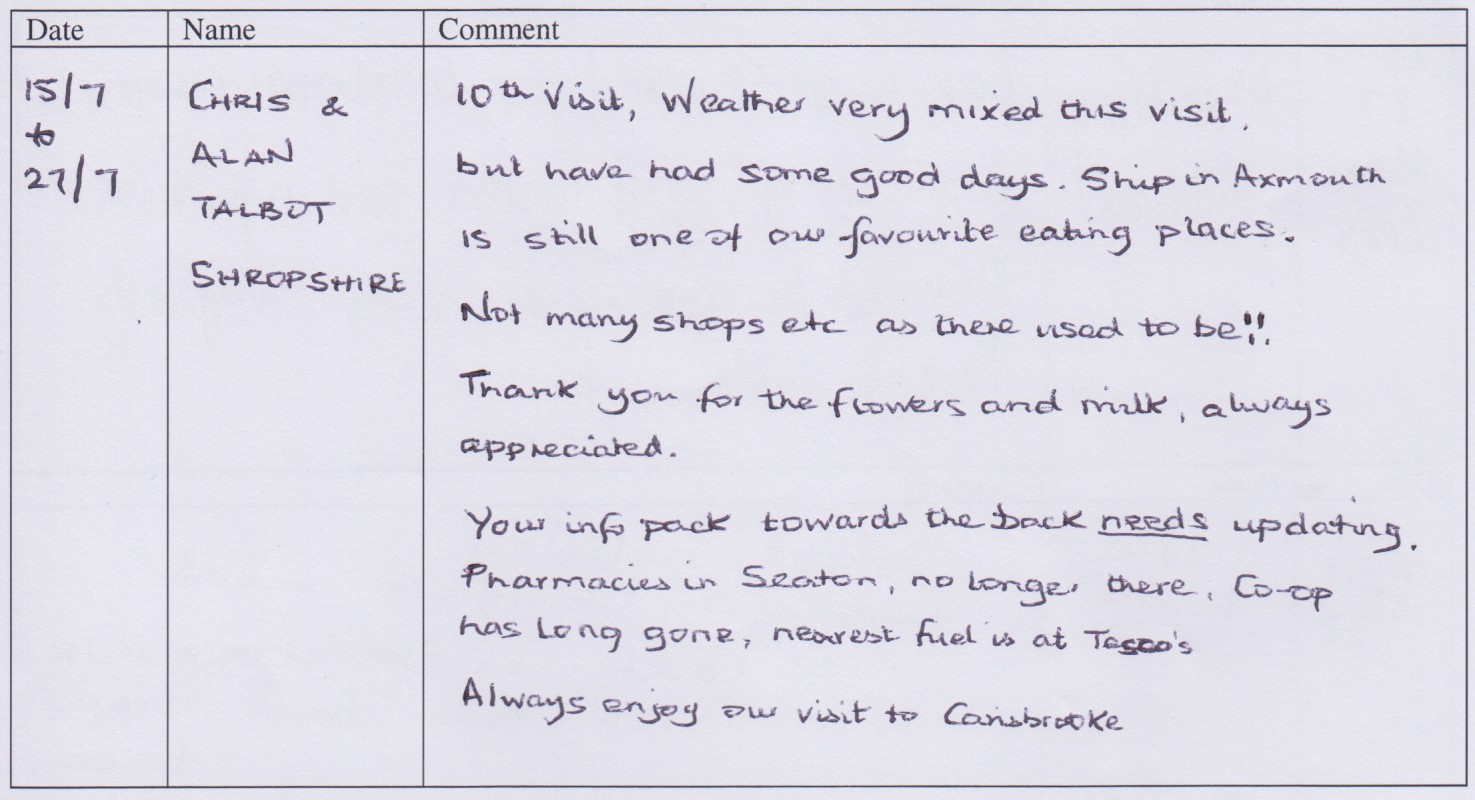 Date Name Comment
15/7
to
27/7
CHRIS &
ALAN
TALBOT
SHROPSHIRE
10th Visit, Weather very mixed this visit,
but have had some good days. Ship in Axmouth
is still one of our favourite eating places.
Not many shops etc as there used to be!!
Thank you for the flowers and milk, always
appreciated.
Your info pack towards the back needs updating.
Pharmacies in Seaton, no longer there, Co-op
has long gone, nearest fuel is at Tesco's
Always enjoy our visit to Carisbrooke